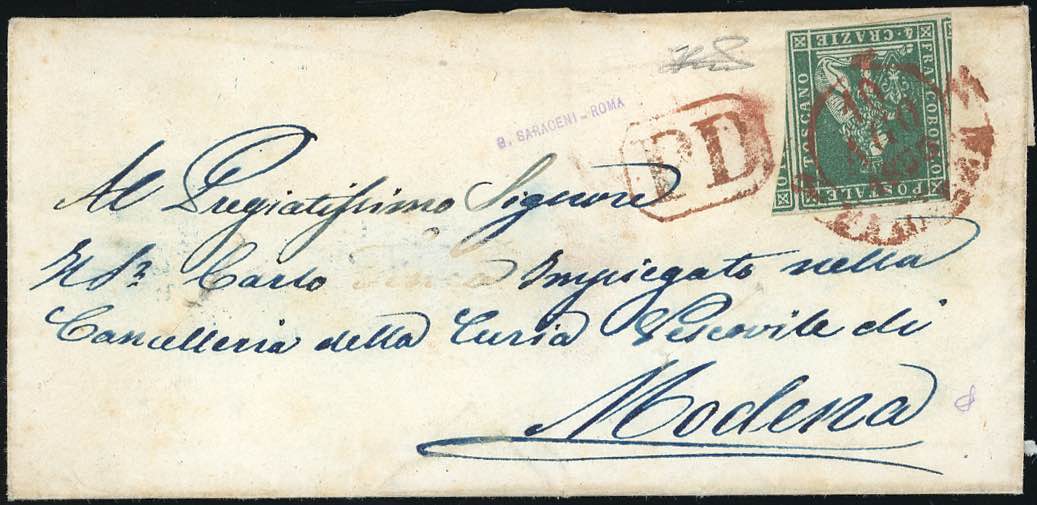 FRANCOBOLLO
POSTALE
TOSCANO
4 CRAZIE
18
AGO
PD
B. SARACENI - ROMA
Al Pregiatissimo Signore
Il Sr. Carlo Impiegato nella
Cancelleria della Curia Vescovile di
Modena